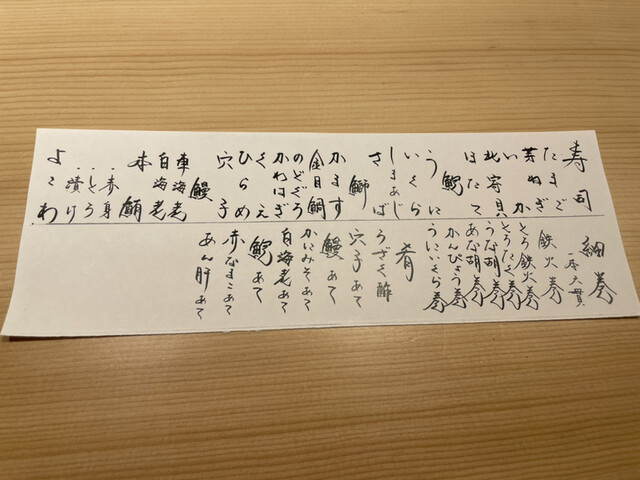 寿司
たまご
芽ねぎ
いか
北寄貝
ほたて
鮑
うに
いくら
しまあじ
さば
鰤
かます
金目鯛
のどぐろ
かわはぎ
くえ
ひらめ
穴子
鰻
車海老
白海老
本鮪
・赤身
・とろ
・漬け
よこわ
細巻
一本六貫
鉄火巻
とろ鉄火巻
とろたく巻
うな胡巻
あな胡巻
かんぴょう巻
うにいくら巻
肴
うざく酢
穴子あて
鰻あて
かにみそあて
白海老あて
鮑あて
赤なまこあて
あん肝あて